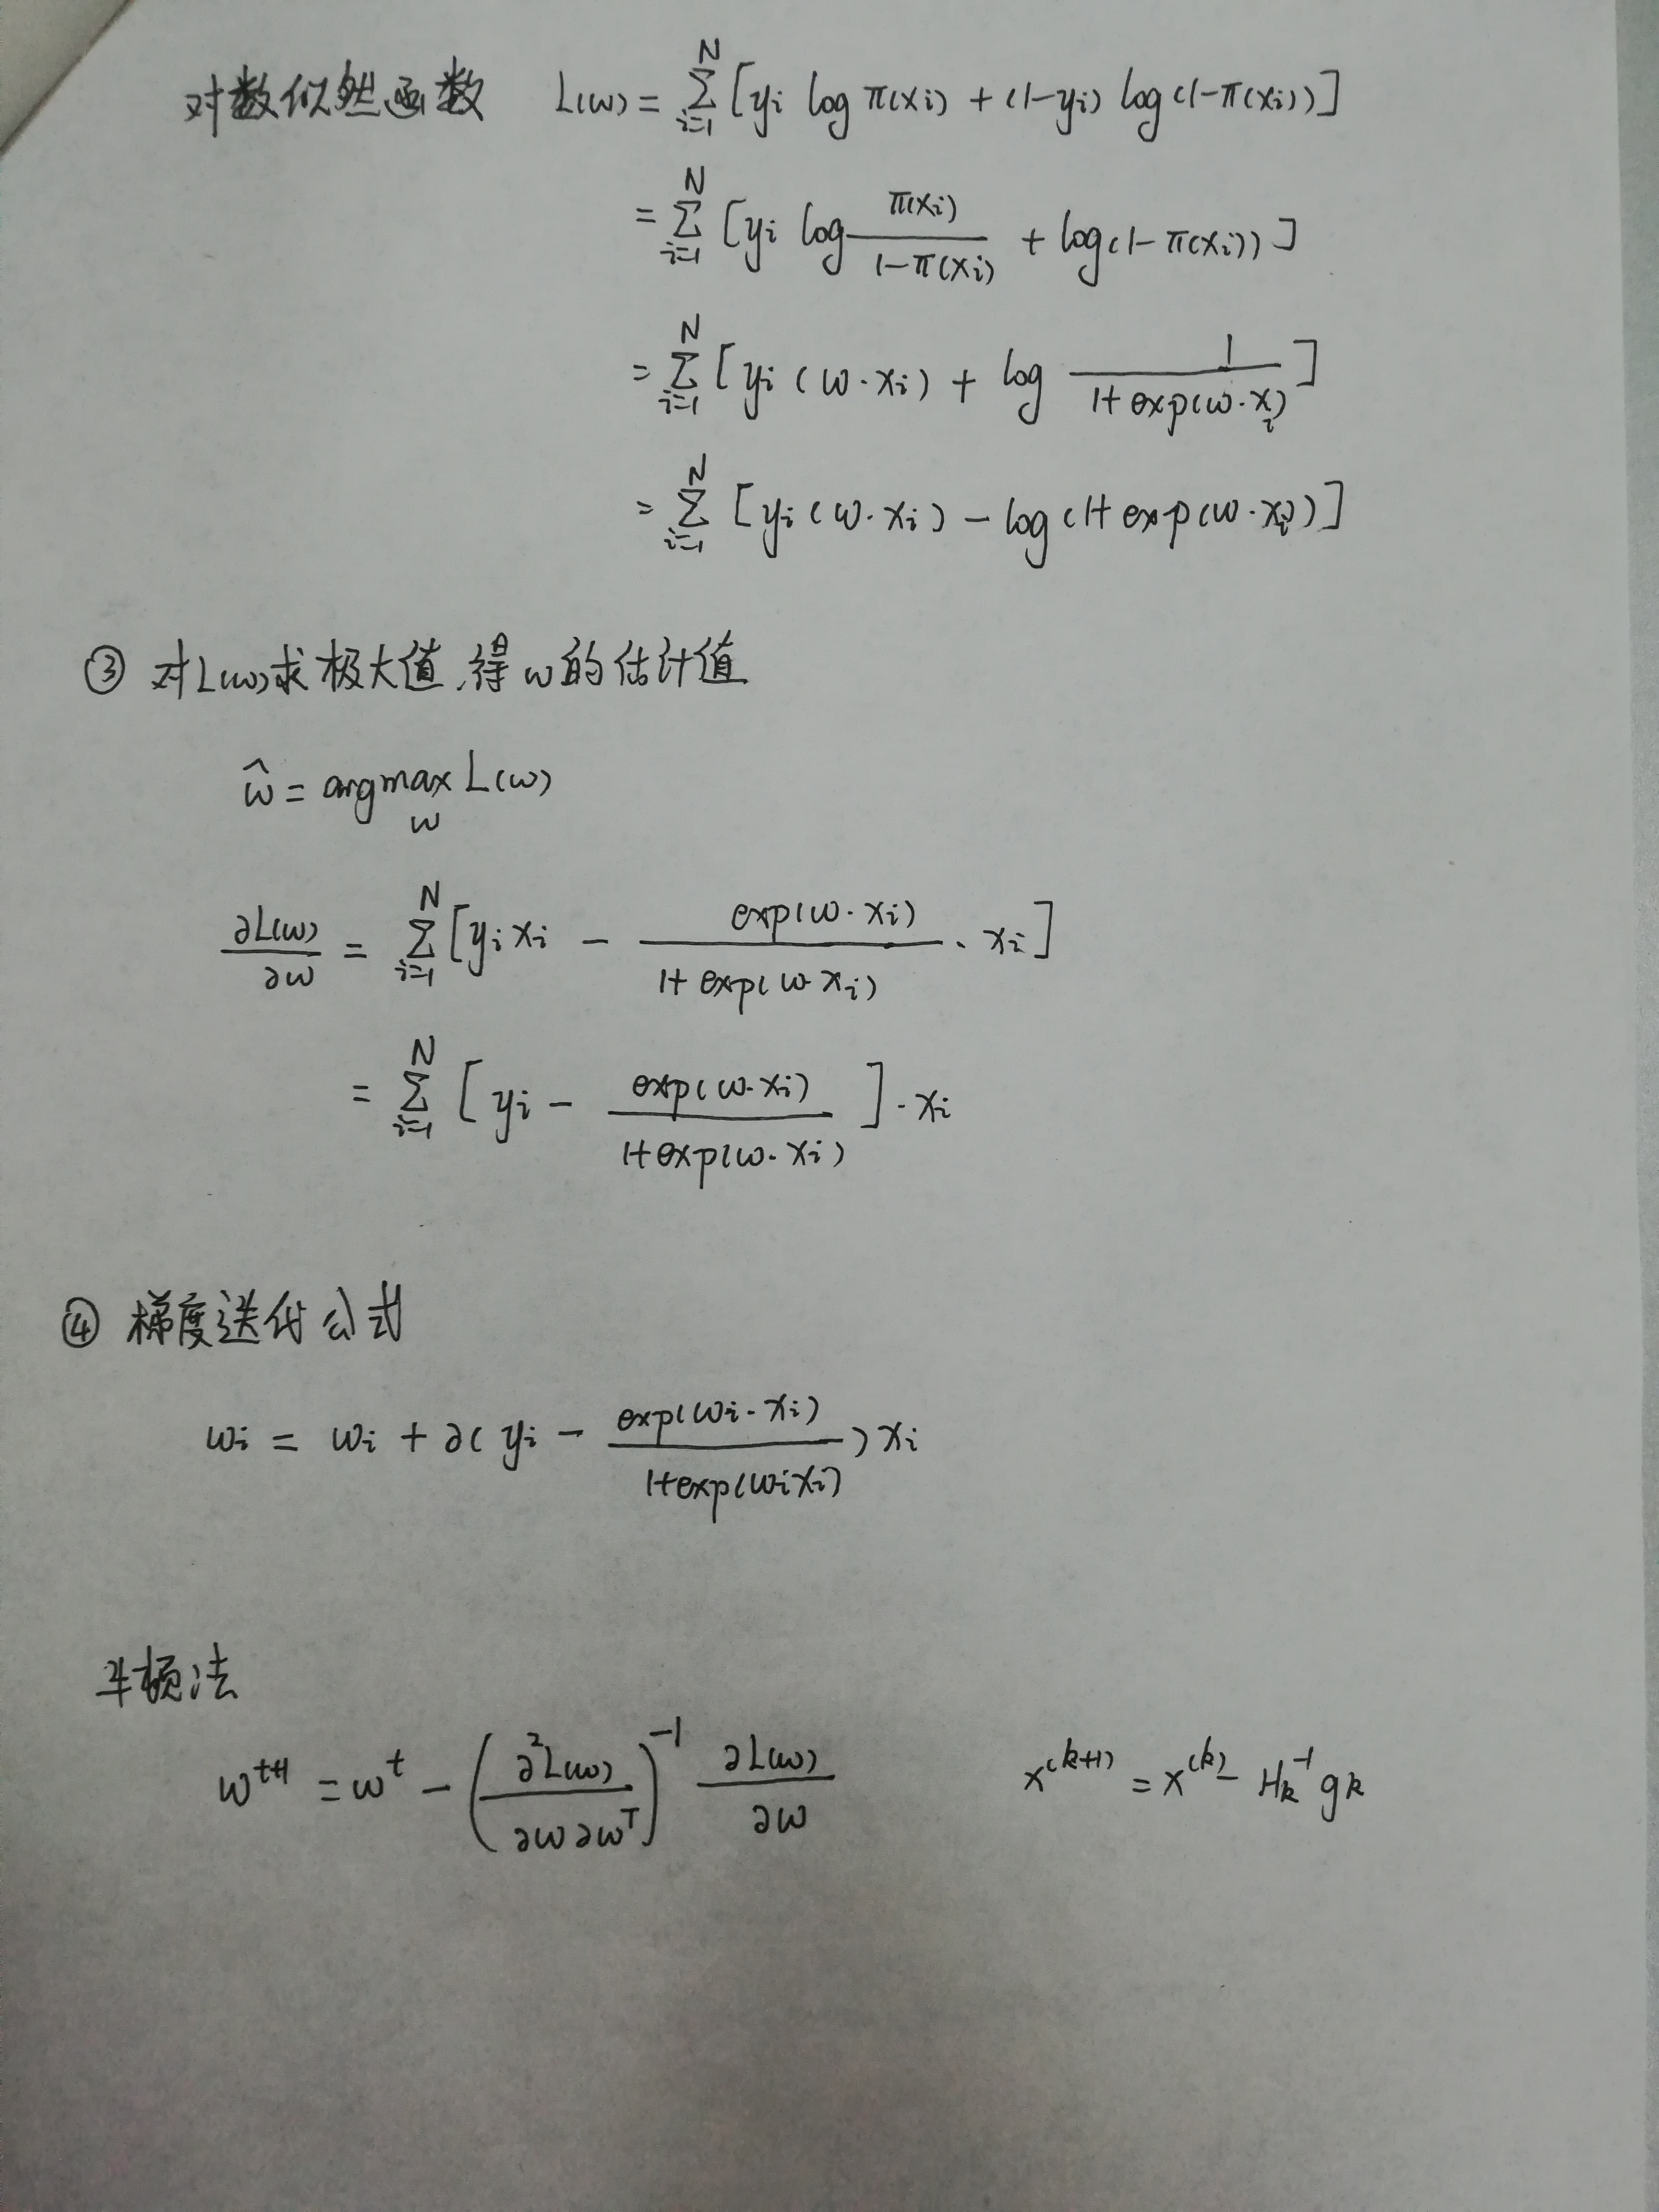 对数似然函数 L(ω) = ∑_{i=1}^{N} [y_i log π(x_i) + (1-y_i) log(1-π(x_i))]
= ∑_{i=1}^{N} [y_i log \frac{π(x_i)}{1-π(x_i)} + log(1-π(x_i))]
= ∑_{i=1}^{N} [y_i (ω·x_i) + log \frac{1}{1+exp(ω·x_i)}]
= ∑_{i=1}^{N} [y_i (ω·x_i) - log(1+exp(ω·x_i))]
③ 对L(ω)求极大值,得ω的估计值
\hat{ω} = argmax_{ω} L(ω)
\frac{∂L(ω)}{∂ω} = ∑_{i=1}^{N} [y_i x_i - \frac{exp(ω·x_i)}{1+exp(ω·x_i)} · x_i]
= ∑_{i=1}^{N} [y_i - \frac{exp(ω·x_i)}{1+exp(ω·x_i)}] · x_i
④ 梯度迭代公式
ω_i = ω_i + ∂(y_i - \frac{exp(ω_i·x_i)}{1+exp(ω_i x_i)}) x_i
牛顿法
ω^{t+1} = ω^t - (\frac{∂^2L(ω)}{∂ω∂ω^T})^{-1} \frac{∂L(ω)}{∂ω} x^{(k+1)} = x^{(k)} - H_k^{-1} g_k